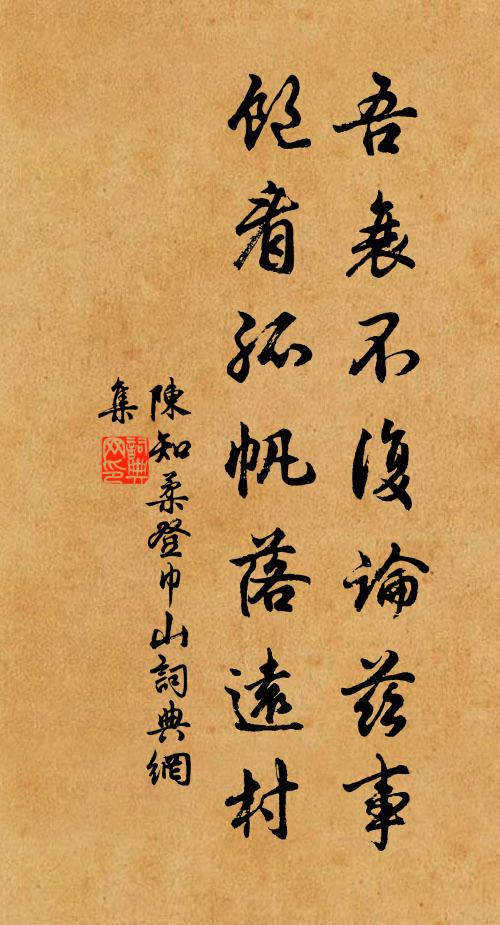 吾衰不復論茲事
飽看孤帆落遠村
陳知柔登巾山詞典網
集
詞典網印